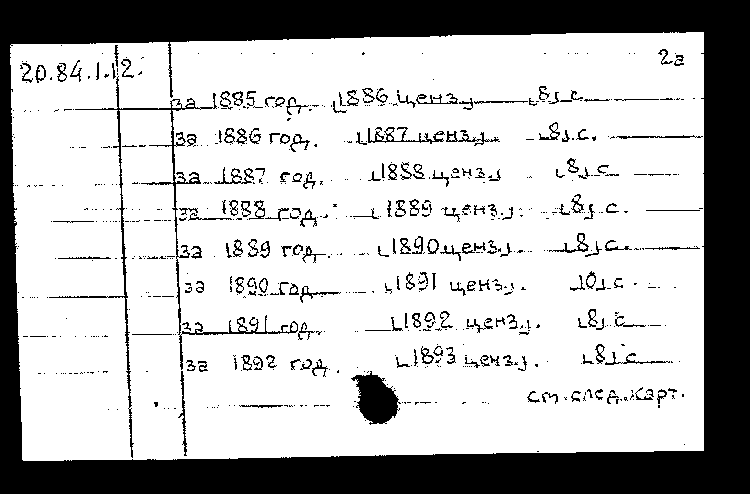 20.84.1.12.
2а
за 1885 год. [1886 ценз.] [8] с.
за 1886 год. [1887 ценз.] [8] с.
за 1887 год. [1888 ценз.] [8] с
за 1888 год. [1889 ценз.] [8] с.
за 1889 год [1890 ценз.] [8] с.
за 1890 год [1891 ценз.]. [10] с.
за 1891 год. [1892 ценз.]. [8] с
за 1892 год. [1893 ценз.]. [8] с
см. след. карт.